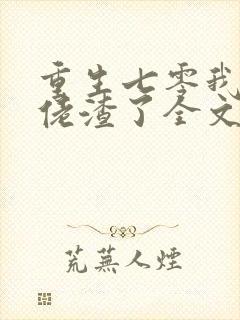 重生七零我
佬渣了全文
荒蕪人煙